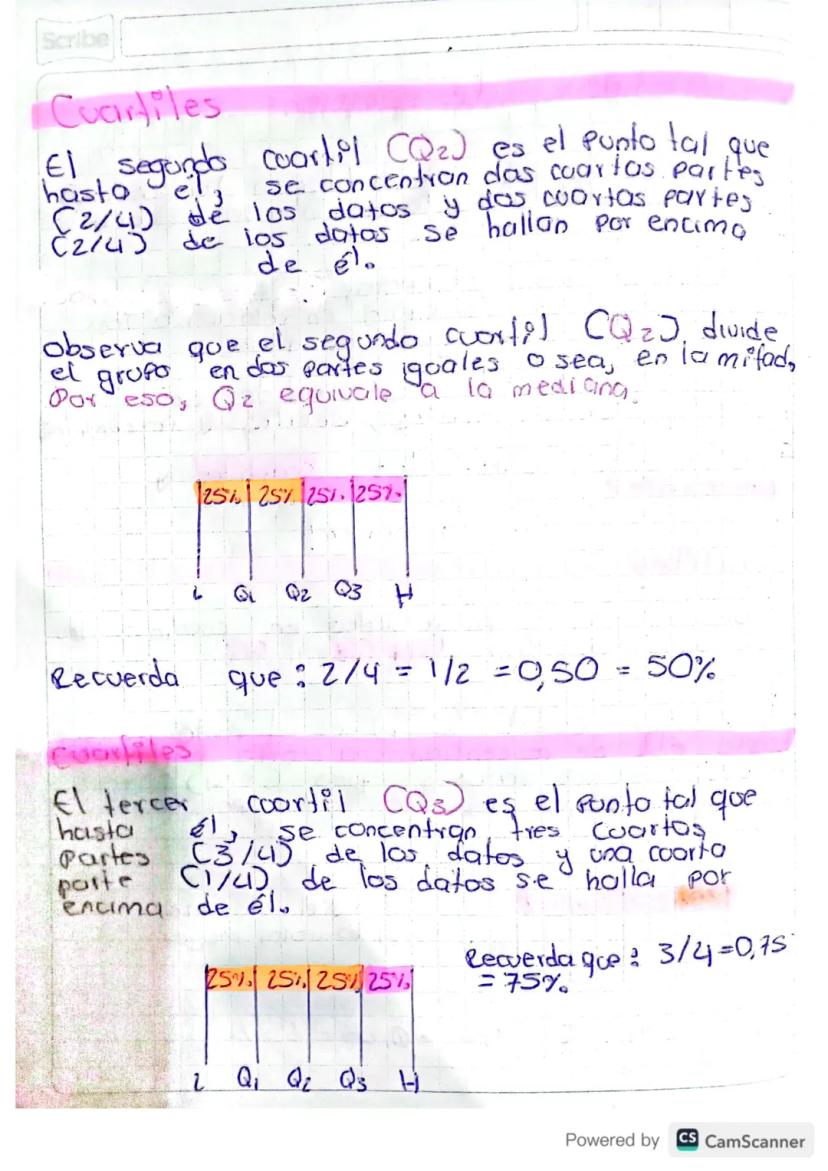 Scribe
Cuartiles
El segundo cuartil (Q2) es el punto tal que
hasta él, se concentran dos cuartas partes
(2/4) de los datos y dos cuartas partes
(2/4) de los datos se hallan por encima
de él.
Observa que el segundo cuartil (Q2) divide
el grupo en dos partes iguales o sea, en la mitad,
Por eso, Q2 equivale a la mediana.
25% 25% 25% 25%
L Q1 Q2 Q3 H
Recuerda que: 2/4 = 1/2 = 0,50 = 50%
cuartiles
El tercer cuartil (Q3) es el punto tal que
hasta él, se concentran tres cuartas
partes (3/4) de los datos y una cuarta
parte (1/4) de los datos se halla por
encima de él.
Recuerda que: 3/4=0,75
= 75%
25% 25% 25% 25%
L Q1 Q2 Q3 H
Powered by CS CamScanner